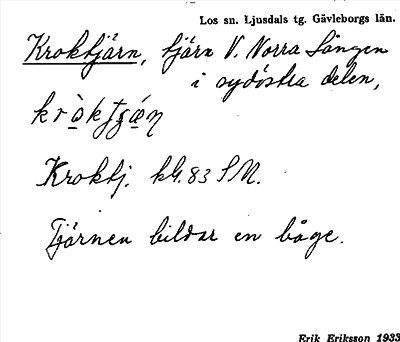 Los sn. Ljusdals tg. Gävleborgs län.
Kroktjärn, tjärn V. Norra Sången
i sydöstra delen,
Kroktj. kbl. 83 SV.
Tjärnen bildar en båge.
Erik Eriksson 1933